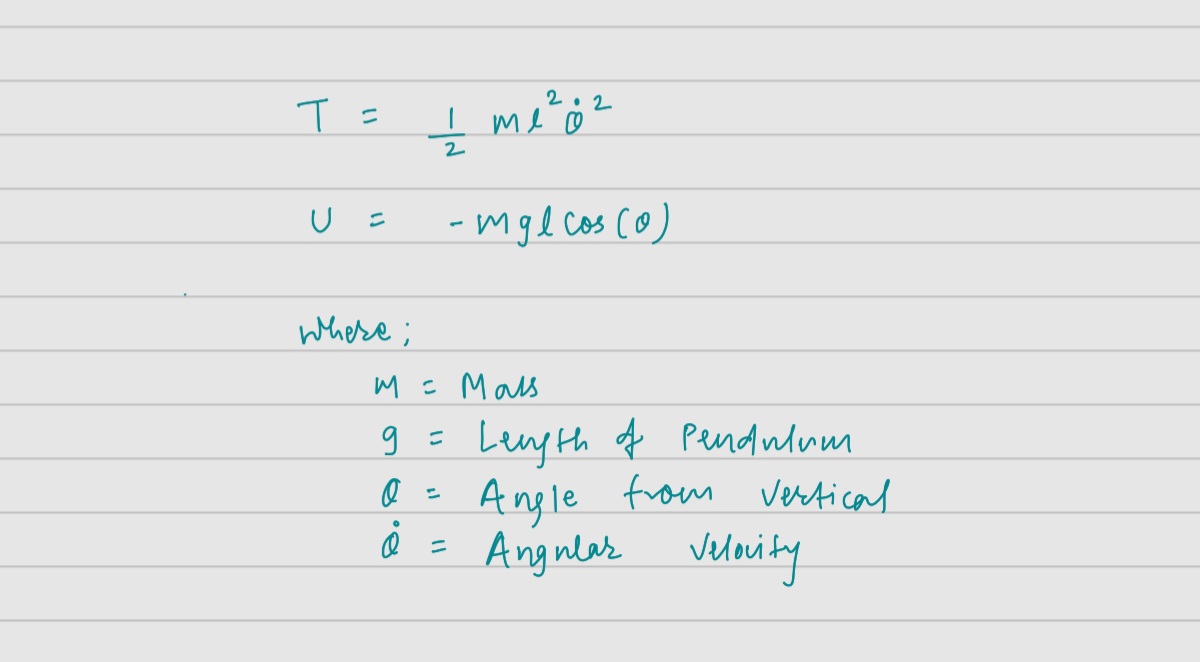 T = 1/2 ml²θ̇²
U = -mgl cos(θ)
where;
m = Mass
g = Length of Pendulum
θ = Angle from vertical
θ̇ = Angular velocity